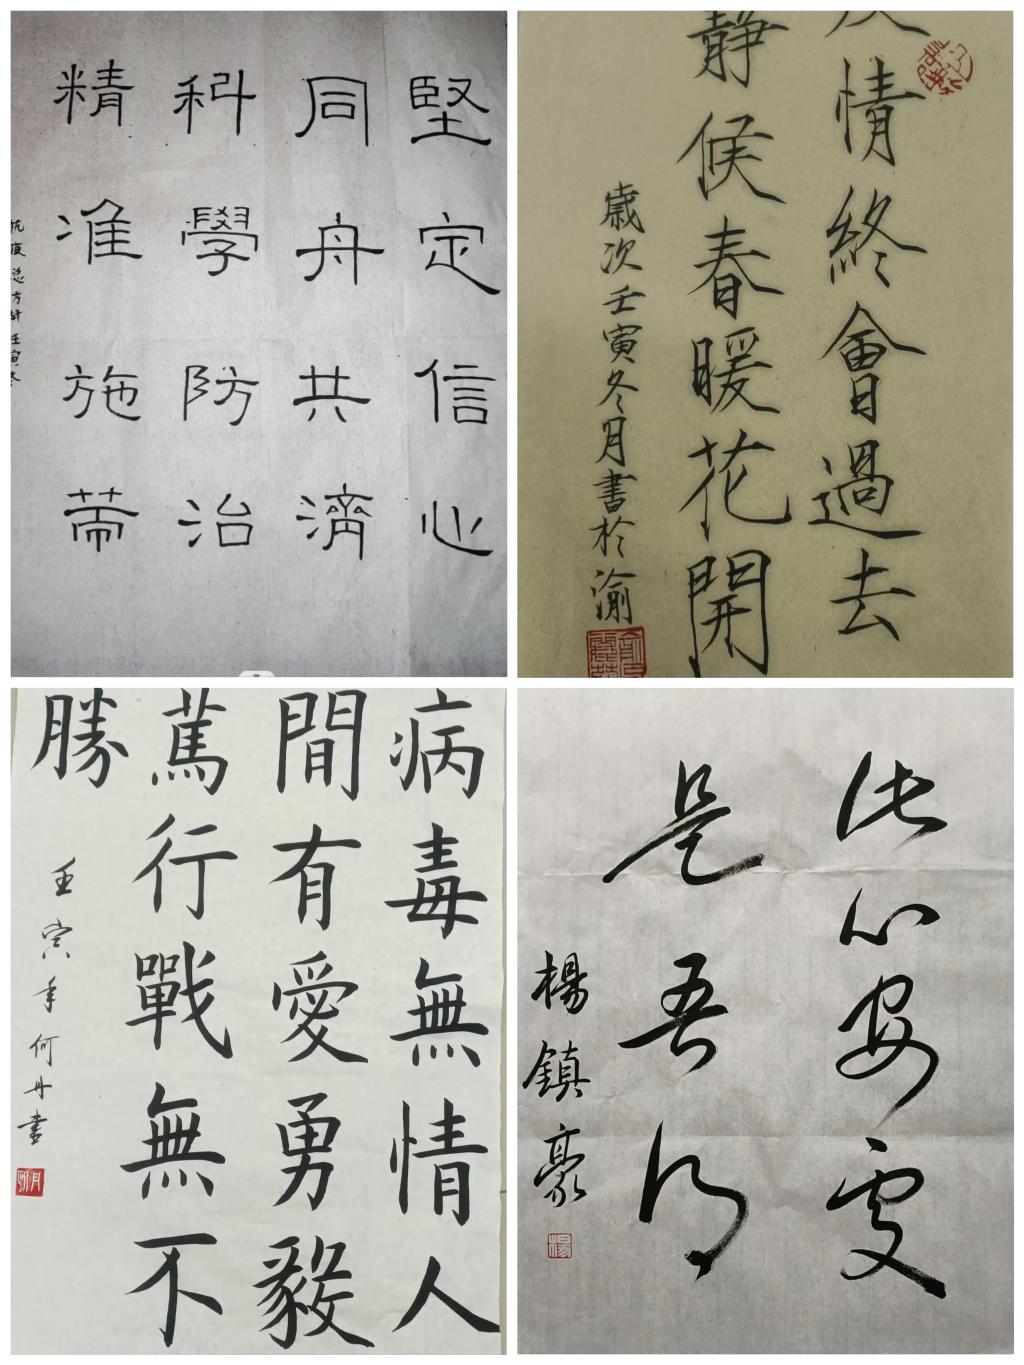 堅定信心
同舟共濟
科學防治
精准施策
抗疫总方針壬寅冬
疫情終會過去
靜候春暖花開
歲次壬寅冬月書於渝
病毒無情人
間有愛勇毅
篤行戰無不
勝
壬寅年何丹書
此心安處
是吾鄉
楊鎮豪
楊